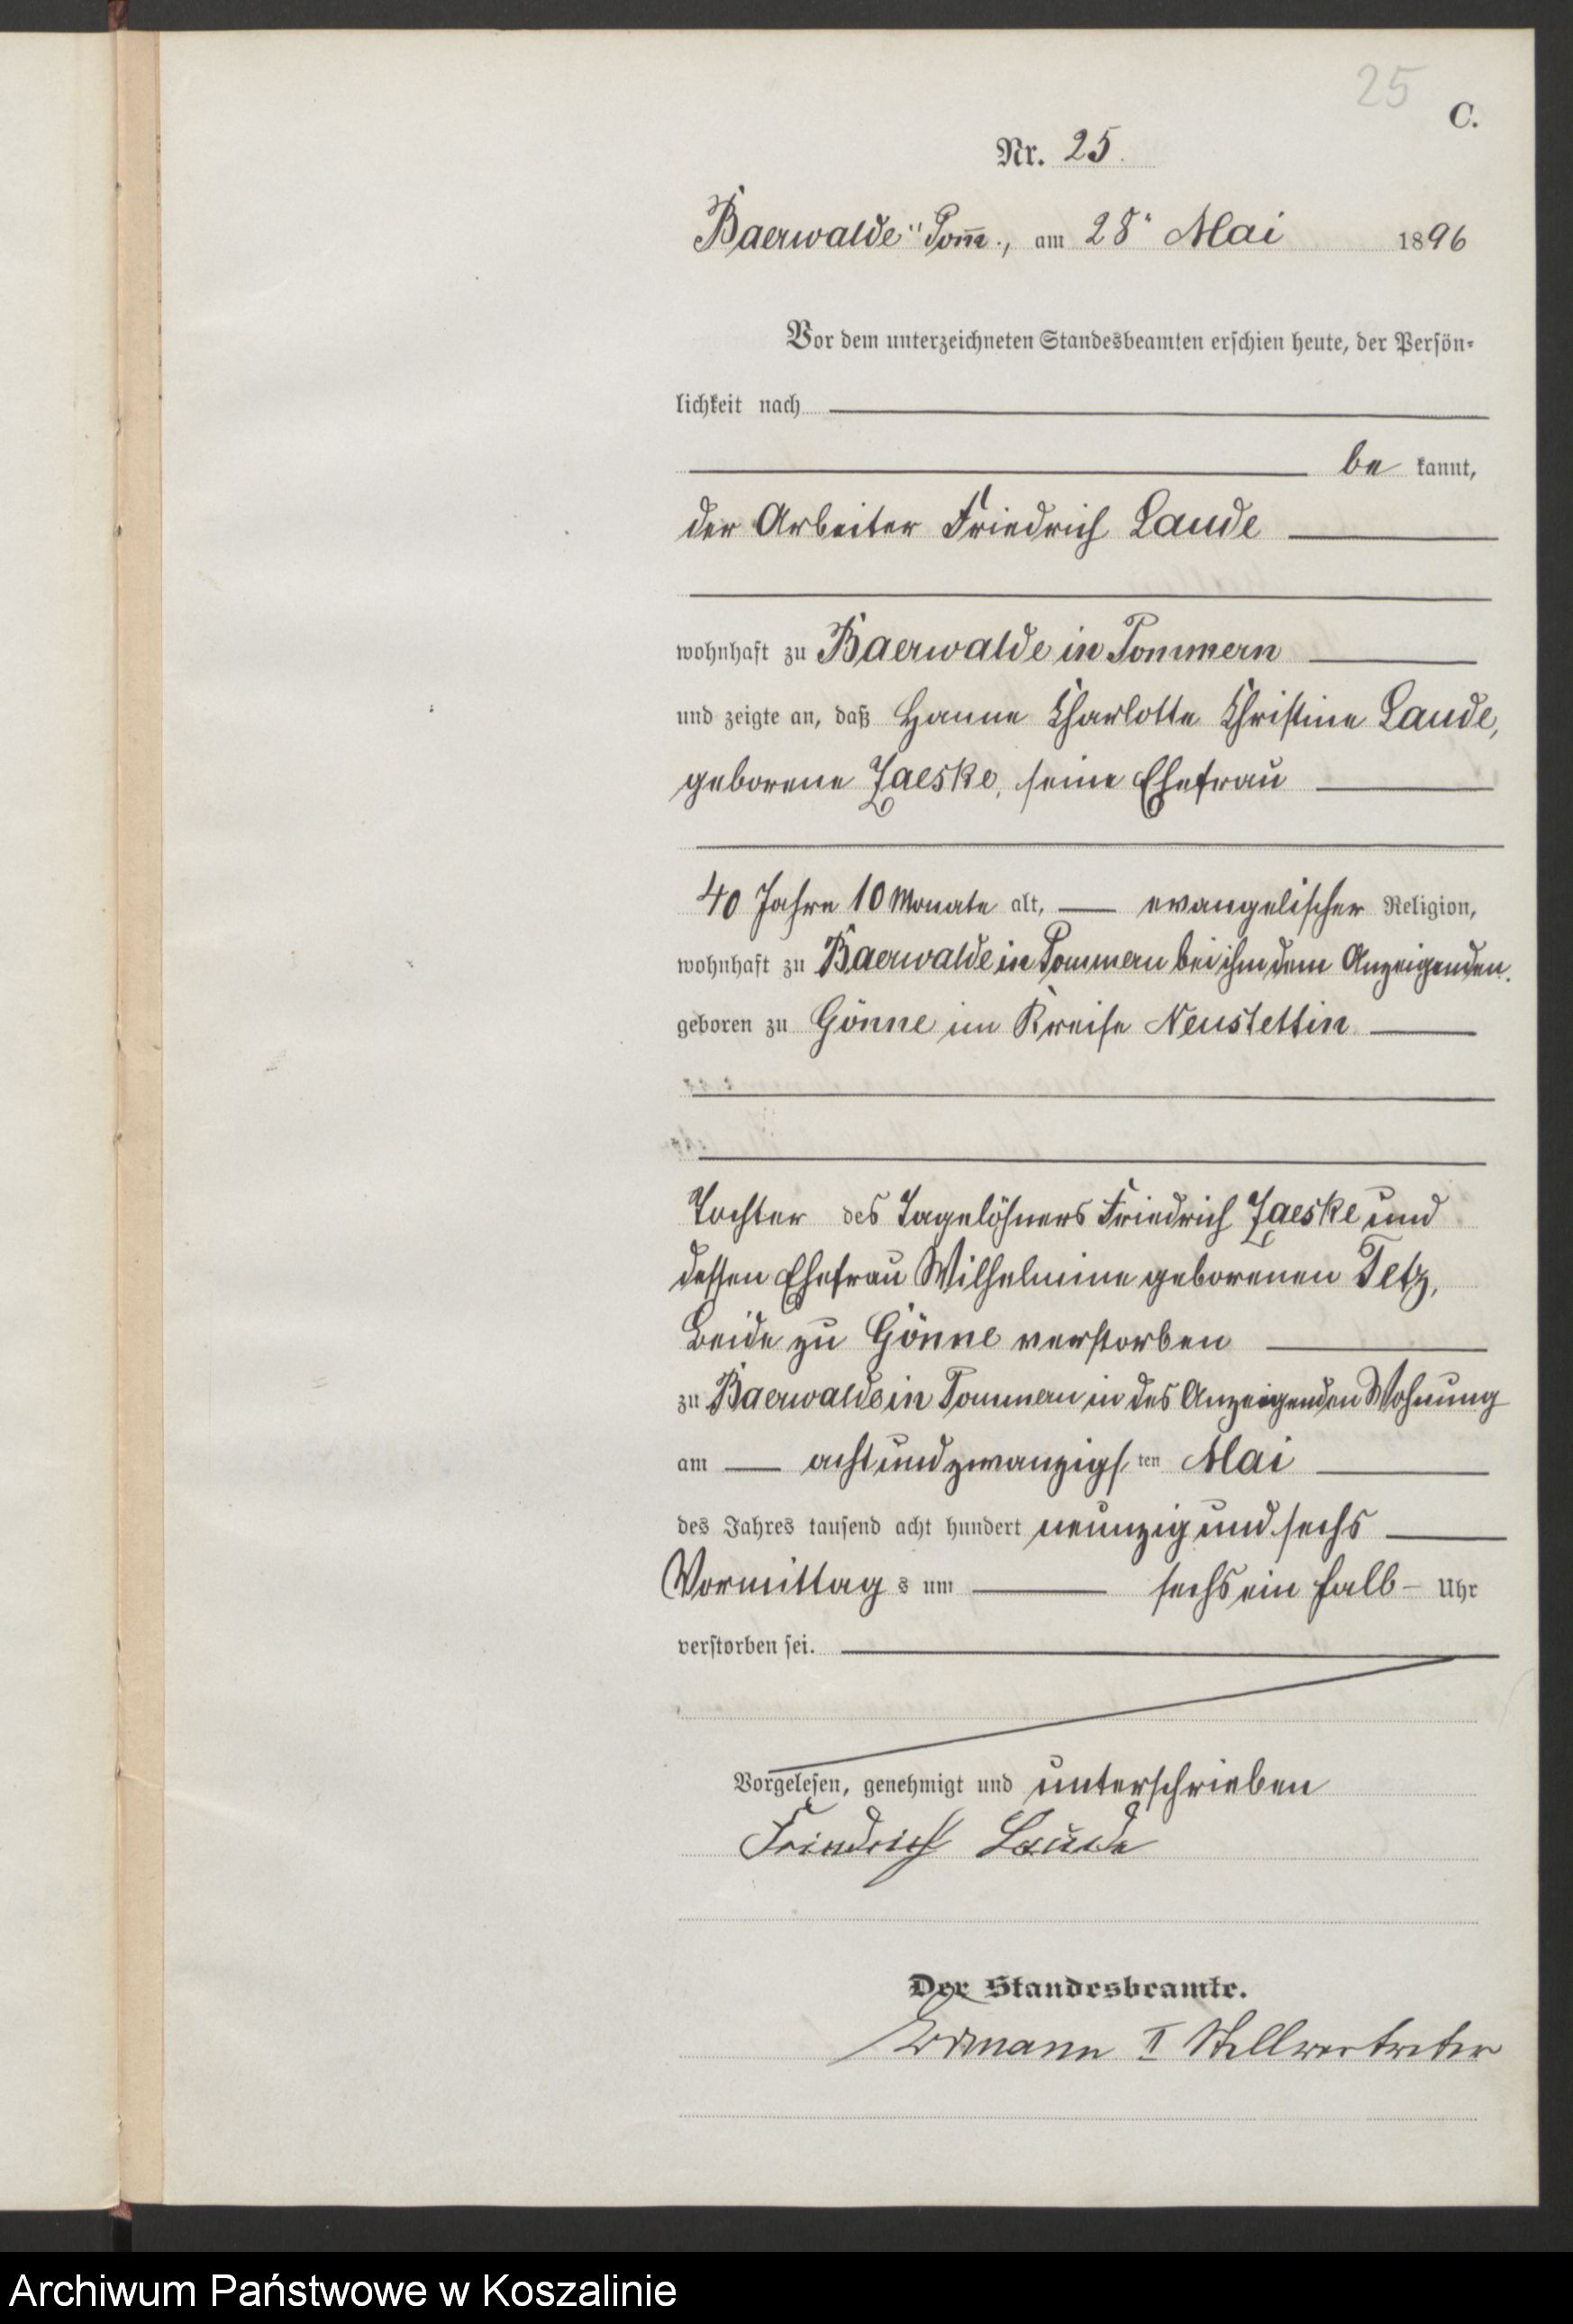 25
C.
Nr. 25.
Baerwalde i/ Pom̄., am 28. Mai 1896
Vor dem unterzeichneten Standesbeamten erschien heute, der Persön-
lichkeit nach
be kannt,
der Arbeiter Friedrich Laude
wohnhaft zu Baerwalde in Pommern
und zeigte an, daß Hanne Charlotte Christine Laude,
geborene Jaeske, seine Ehefrau
40 Jahre 10 Monate alt, evangelischer Religion,
wohnhaft zu Baerwalde in Pommern bei ihm dem Anzeigenden.
geboren zu Gönne im Kreise Neustettin
Tochter des Tagelöhners Friedrich Jaeske und
dessen Ehefrau Wilhelmine geborenen Tetz,
Beide zu Gönne verstorben
zu Baerwalde in Pommern in des Anzeigenden Wohnung
am acht und zwanzigs ten Mai
des Jahres tausend acht hundert neunzig und sechs
Vormittag s um sechs ein halb – Uhr
verstorben sei.
Vorgelesen, genehmigt und unterschrieben
Friedrich Laude
Der Standesbeamte.
Erdmann II Stellvertreter
Archiwum Państwowe w Koszalinie